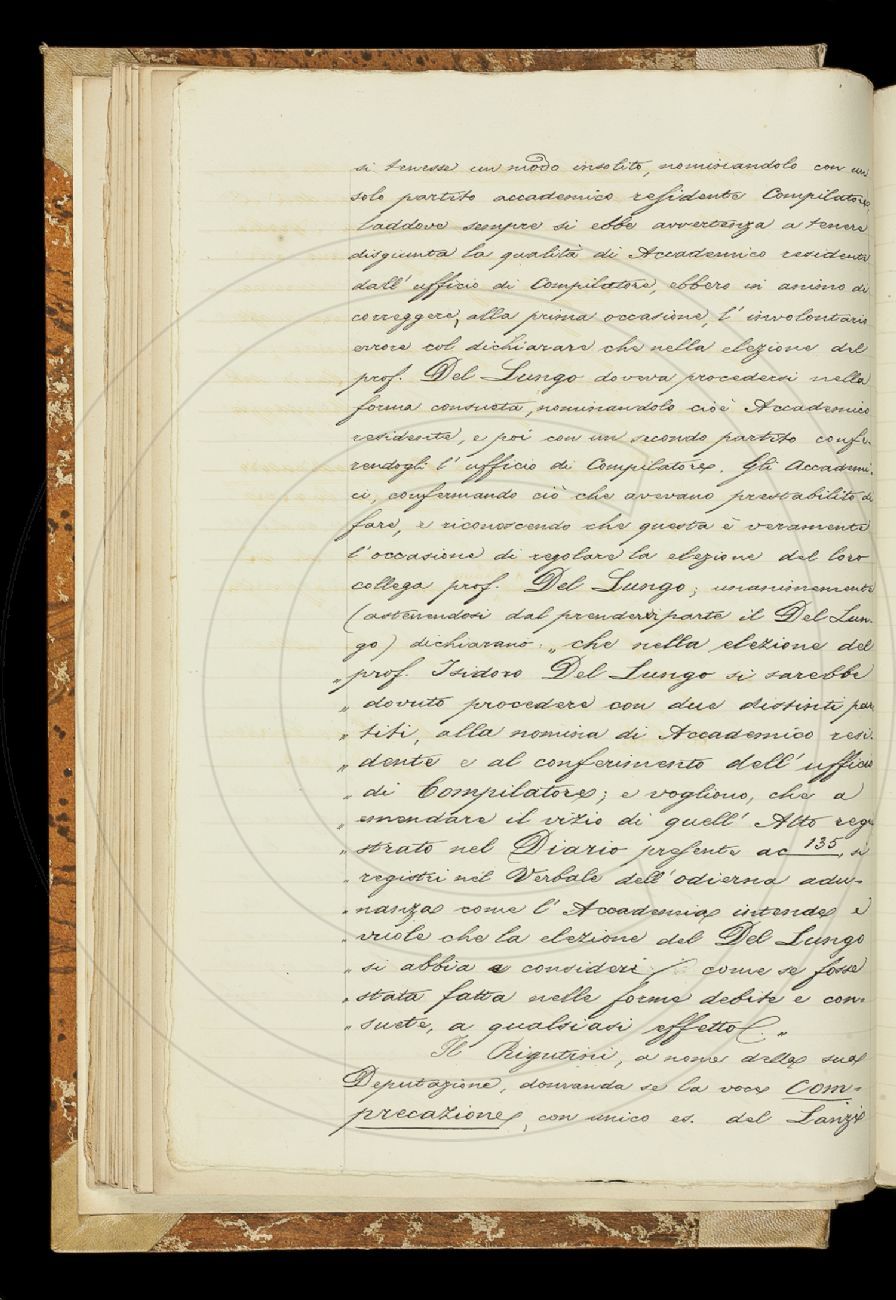 si tenesse un modo insolito, nominandolo con un
solo partito accademico residente Compilatore,
laddove sempre si ebbe avvertenza a tenere
disgiunta la qualità di Accademico residente
dall'ufficio di Compilatore, ebbero in animo di
correggere, alla prima occasione, l'involontario
errore col dichiarare che nella elezione del
prof. Del Lungo doveva procedersi nella
forma consueta, nominandolo cioè Accademico
residente, e poi con un secondo partito confe-
rendogli l'ufficio di Compilatore. Gli Accademi-
ci, confermando ciò che avevano prestabilito di
fare, e riconoscendo che questa è veramente
l'occasione di regolare la elezione del loro
collega prof. Del Lungo; unanimemente
(astenendosi dal prendervi parte il Del Lun-
go) dichiarano: „ che nella elezione del
„ prof. Isidoro Del Lungo si sarebbe
„ dovuto procedere con due distinti par
„ titi, alla nomina di Accademico resi-
„ dente e al conferimento dell'ufficio
„ di Compilatore; e vogliono, che a
„ emendare il vizio di quell'Atto regi
„ strato nel Diario presente ac 135, si
„ registri nel Verbale dell'odierna adu-
„ nanza come l'Accademia intende e
„ vuole che la elezione del Del Lungo
„ si abbia e consideri come se fosse
„ stata fatta nelle forme debite e con-
„ suete, a qualsiasi effetto. „
Il Rigutini, a nome della sua
Deputazione, domanda se la voce Com-
precazione, con unico es. del Lanzi